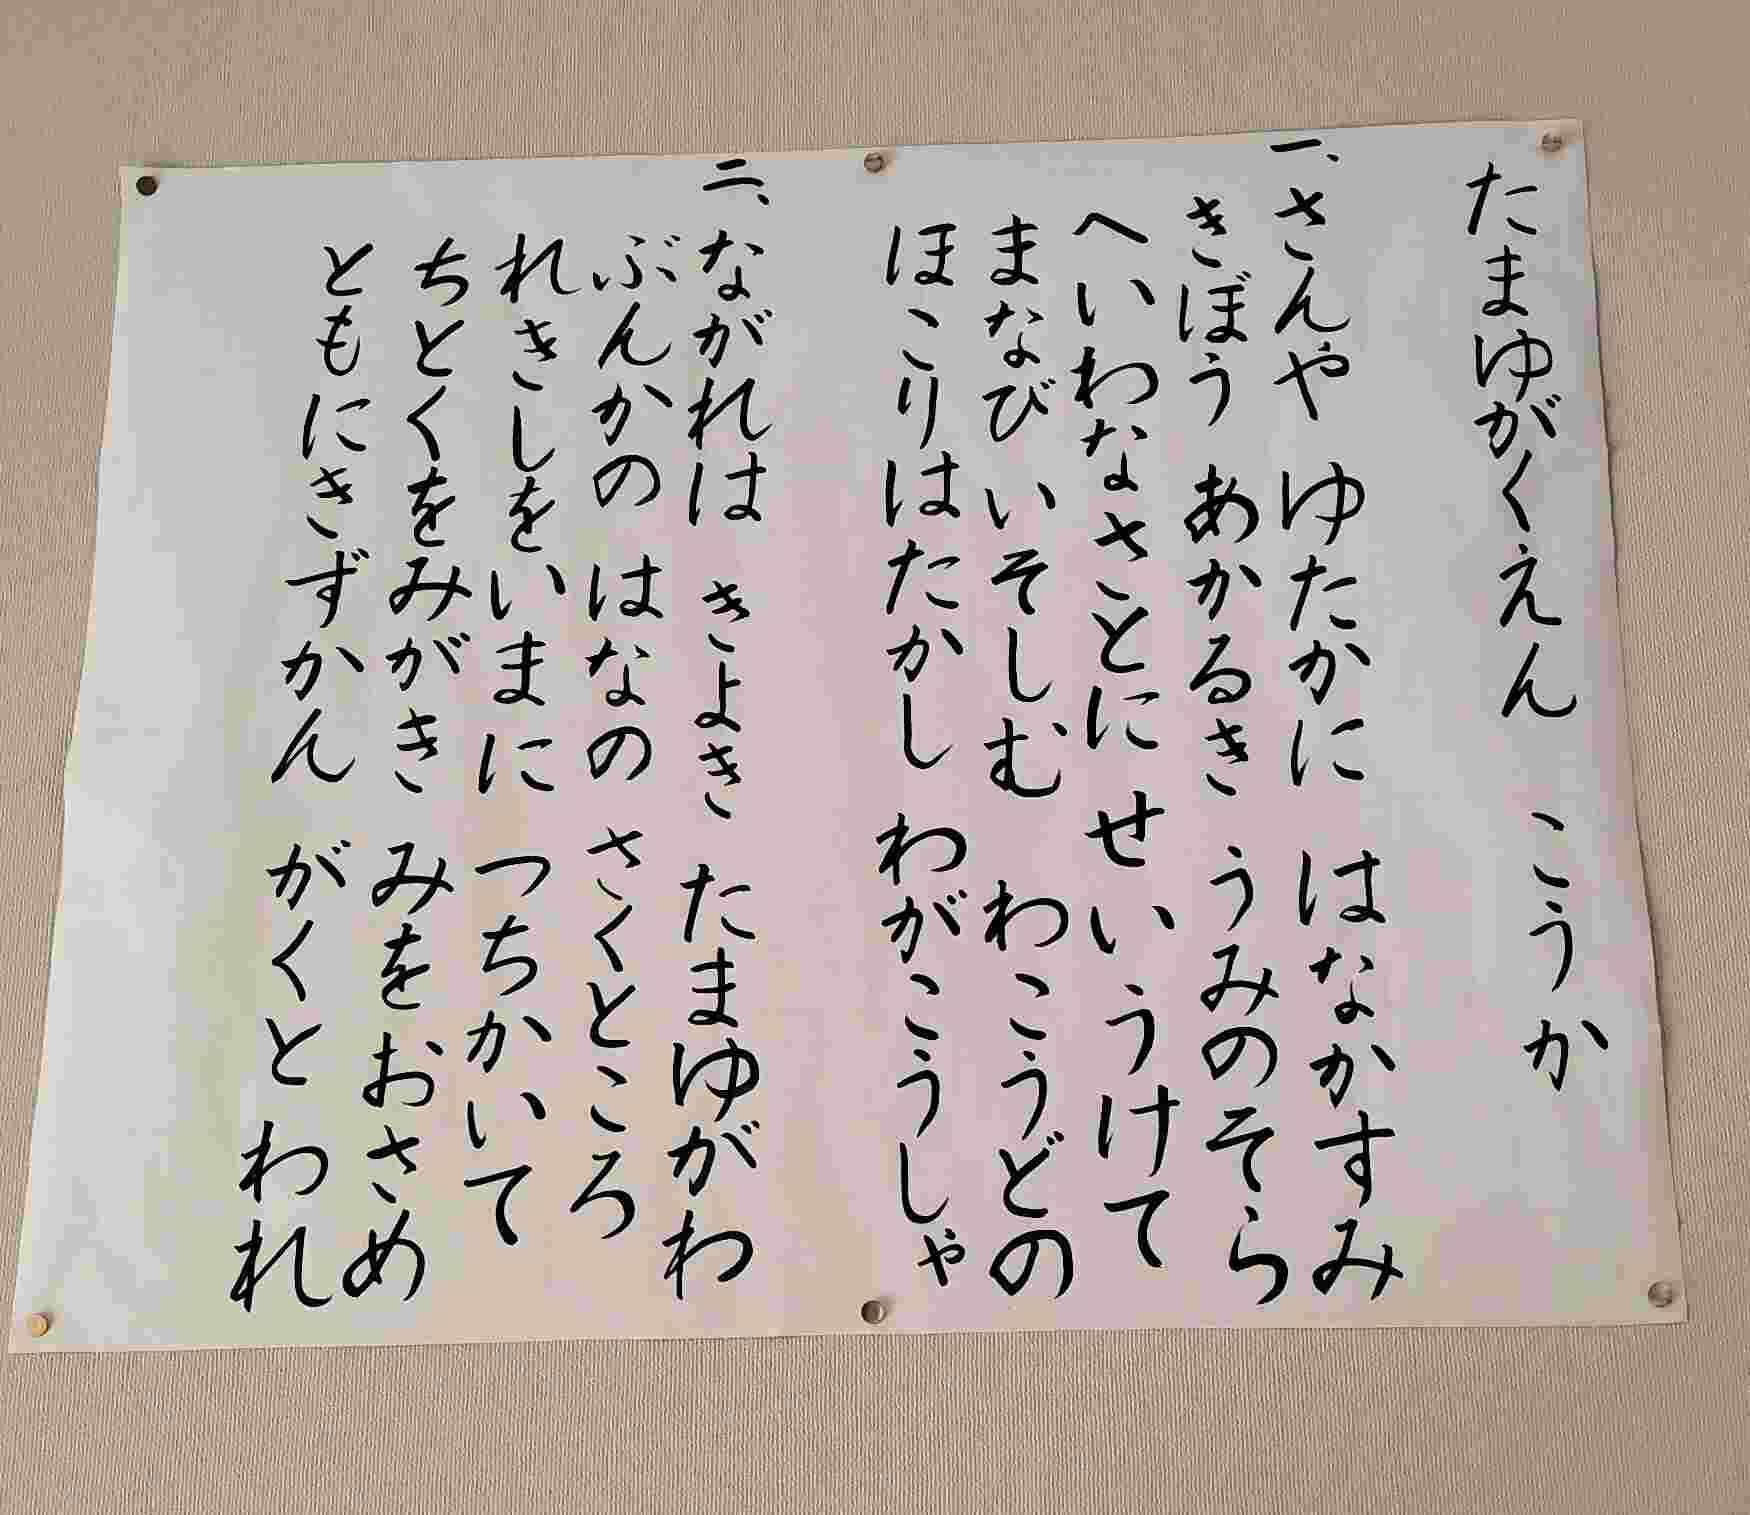 たまゆがくえん　こうか
一、さんや　ゆたかに　はなかすみ
きぼう　あかるき　うみのそら
へいわなさとに　せいうけて
まなびいそしむ　わこうどの
ほこりはたかし　わがこうしゃ
二、ながれは　きよき　たまゆがわ
ぶんかの　はなの　さくところ
れきしをいまに　つちかいて
ちとくをみがき　みをおさめ
ともにきずかん　がくとわれ